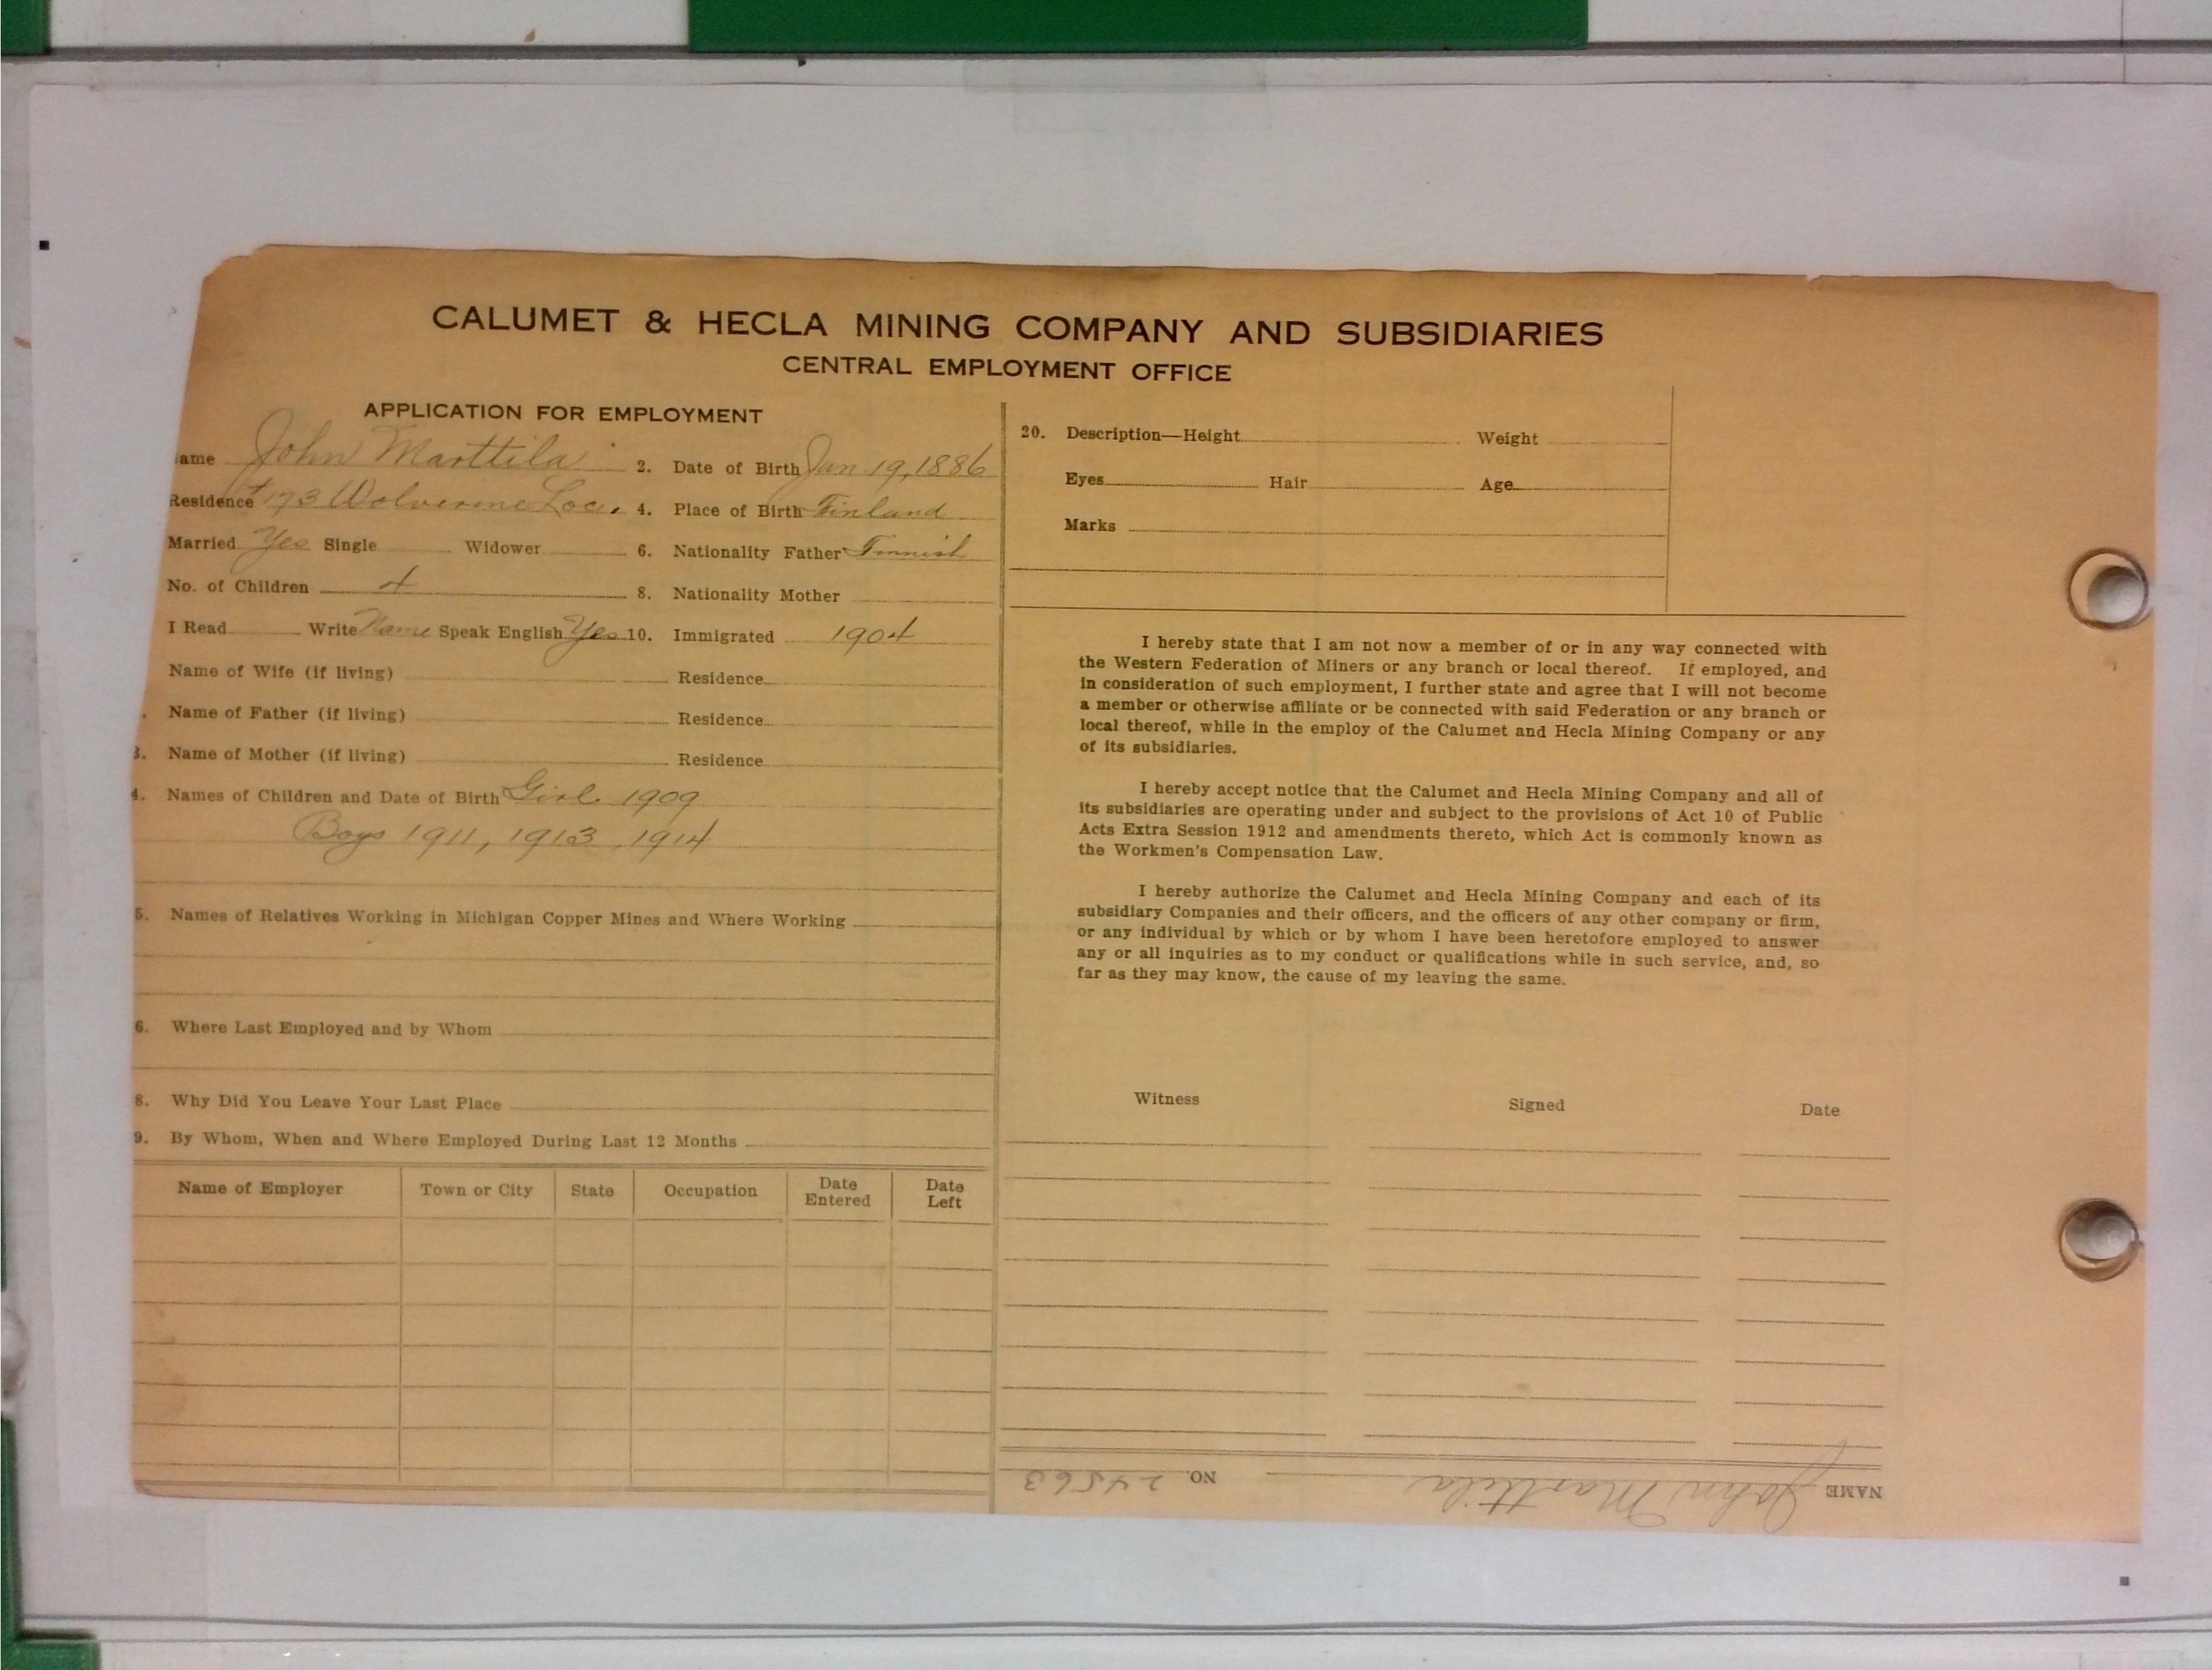 CALUMET & HECLA MINING COMPANY AND SUBSIDIARIES
CENTRAL EMPLOYMENT OFFICE
APPLICATION FOR EMPLOYMENT
ame John Marttila 2. Date of Birth Jan 19, 1886
Residence 173 Wolverine Loc. 4. Place of Birth Finland
Married Yes Single Widower 6. Nationality Father Finnish
No. of Children 4 8. Nationality Mother
I Read Write Name Speak English Yes 10. Immigrated 1904
Name of Wife (if living) Residence
. Name of Father (if living) Residence
3. Name of Mother (if living) Residence
4. Names of Children and Date of Birth Girl 1909
Boys 1911, 1913, 1914
5. Names of Relatives Working in Michigan Copper Mines and Where Working
6. Where Last Employed and by Whom
8. Why Did You Leave Your Last Place
9. By Whom, When and Where Employed During Last 12 Months
Name of Employer Town or City State Occupation Date Entered Date Left
20. Description—Height Weight
Eyes Hair Age
Marks
I hereby state that I am not now a member of or in any way connected with
the Western Federation of Miners or any branch or local thereof. If employed, and
in consideration of such employment, I further state and agree that I will not become
a member or otherwise affiliate or be connected with said Federation or any branch or
local thereof, while in the employ of the Calumet and Hecla Mining Company or any
of its subsidiaries.
I hereby accept notice that the Calumet and Hecla Mining Company and all of
its subsidiaries are operating under and subject to the provisions of Act 10 of Public
Acts Extra Session 1912 and amendments thereto, which Act is commonly known as
the Workmen's Compensation Law.
I hereby authorize the Calumet and Hecla Mining Company and each of its
subsidiary Companies and their officers, and the officers of any other company or firm,
or any individual by which or by whom I have been heretofore employed to answer
any or all inquiries as to my conduct or qualifications while in such service, and, so
far as they may know, the cause of my leaving the same.
Witness Signed Date
NAME John Marttila NO. 24563